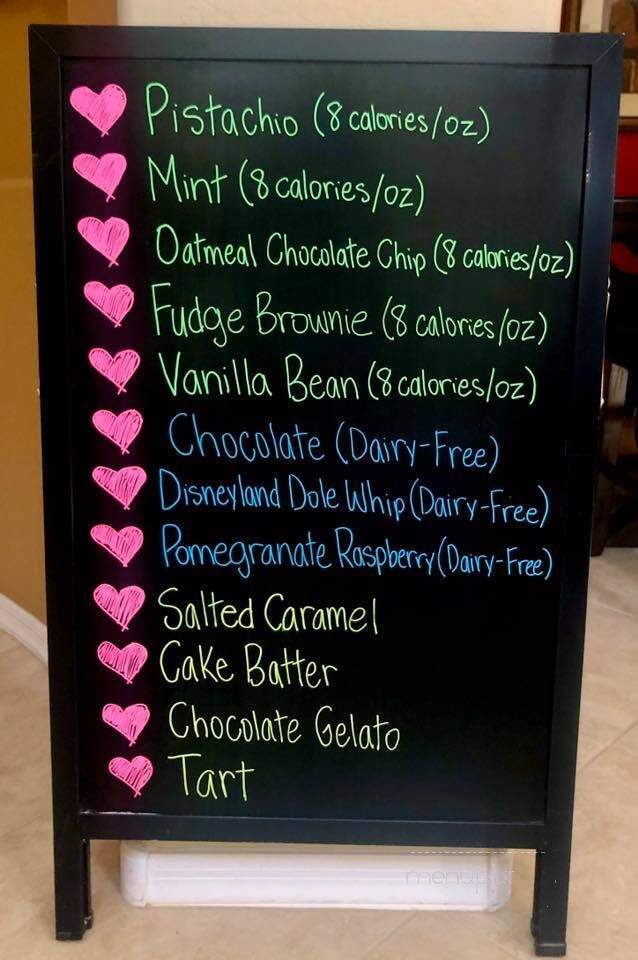 Pistachio (8 calories/oz)
Mint (8 calories/oz)
Oatmeal Chocolate Chip (8 calories/oz)
Fudge Brownie (8 calories/oz)
Vanilla Bean (8 calories/oz)
Chocolate (Dairy-Free)
Disneyland Dole Whip (Dairy-Free)
Pomegranate Raspberry (Dairy-Free)
Salted Caramel
Cake Batter
Chocolate Gelato
Tart